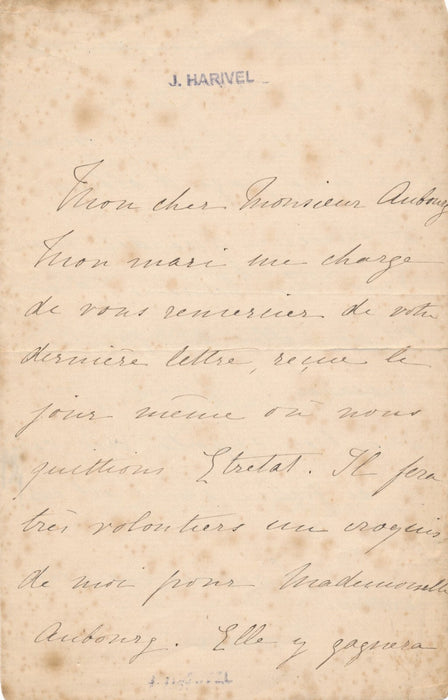 J. HARIVEL
Mon cher Monsieur Aubourg
Mon mari me charge
de vous remercier de votre
dernière lettre, reçue le
jour même où nous
quittions Etretat. Il fera
très volontiers un croquis
de moi pour Mademoiselle
Aubourg. Elle y gagnera